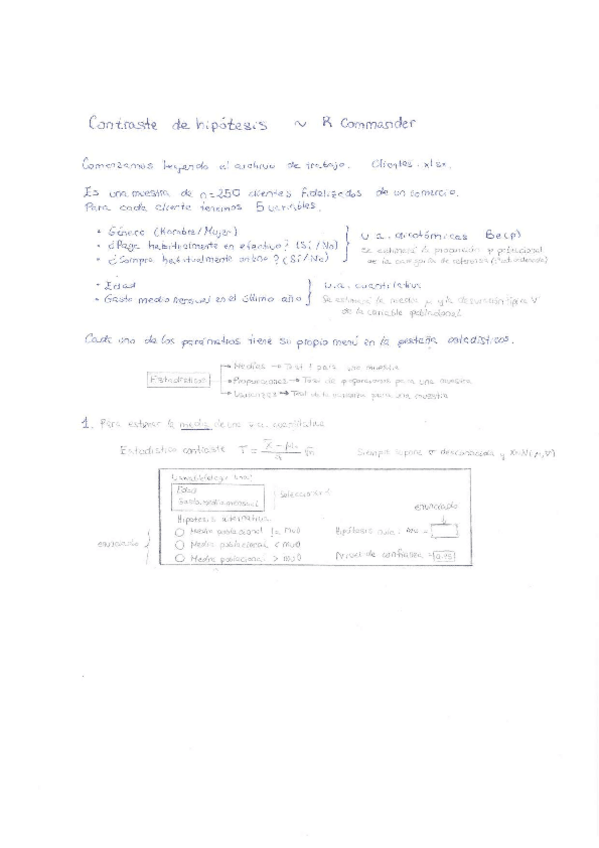 Contraste de hipótesis ~ R Commander
Comenzamos leyendo el archivo de trabajo. Clientes.xlsx.
Es una muestra de n=250 clientes fidelizados de un comercio.
Para cada cliente tenemos 5 variables.
• Género (Hombre/Mujer)
• ¿Paga habitualmente en efectivo? (Sí/No)
• ¿Compra habitualmente online? (Sí/No)
v.a. dicotómicas Be(p)
se estimará la proporción p poblacional
de la categoría de referencia
• Edad
• Gasto medio mensual en el último año
v.a. cuantitativa
Se estimará la media μ y la desviación típica
de la variable poblacional
Cada uno de los parámetros tiene su propio menú en la pestaña estadísticos.
Estadísticos
• Medias → Test t para una muestra
• Proporciones → Test de proporciones para una muestra
• Varianzas → Test de la varianza para una muestra
1. Para estimar la media de una v.a. cuantitativa
Estadístico contraste T = x̄ - μ₀ / s √n
Siempre supone σ desconocida y X~N(μ,σ)
Edad
Gasto medio mensual
Seleccionar 1
Hipótesis alternativa
enunciado
Media poblacional != mu0
Media poblacional < mu0
Media poblacional > mu0
enunciado
Hipótesis nula: mu =
Nivel de confianza = 0.95